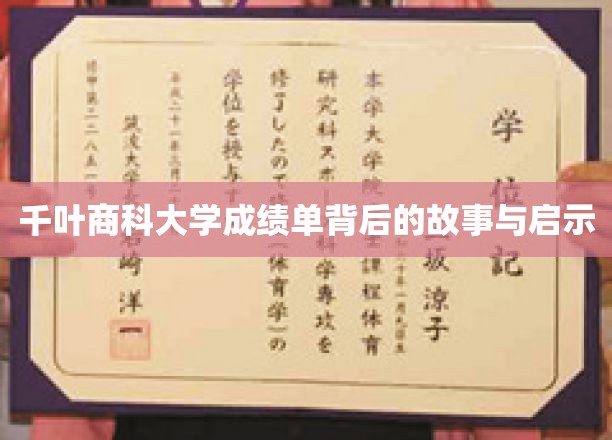 千叶商科大学成绩单背后的故事与启示
学位記
坂涼子
本学大学院 士課程体育
研究科スポー 科学専攻を
修了したので (体育学)の
学位を授与す
平成二十一年三月二
筑波大学 崎洋一